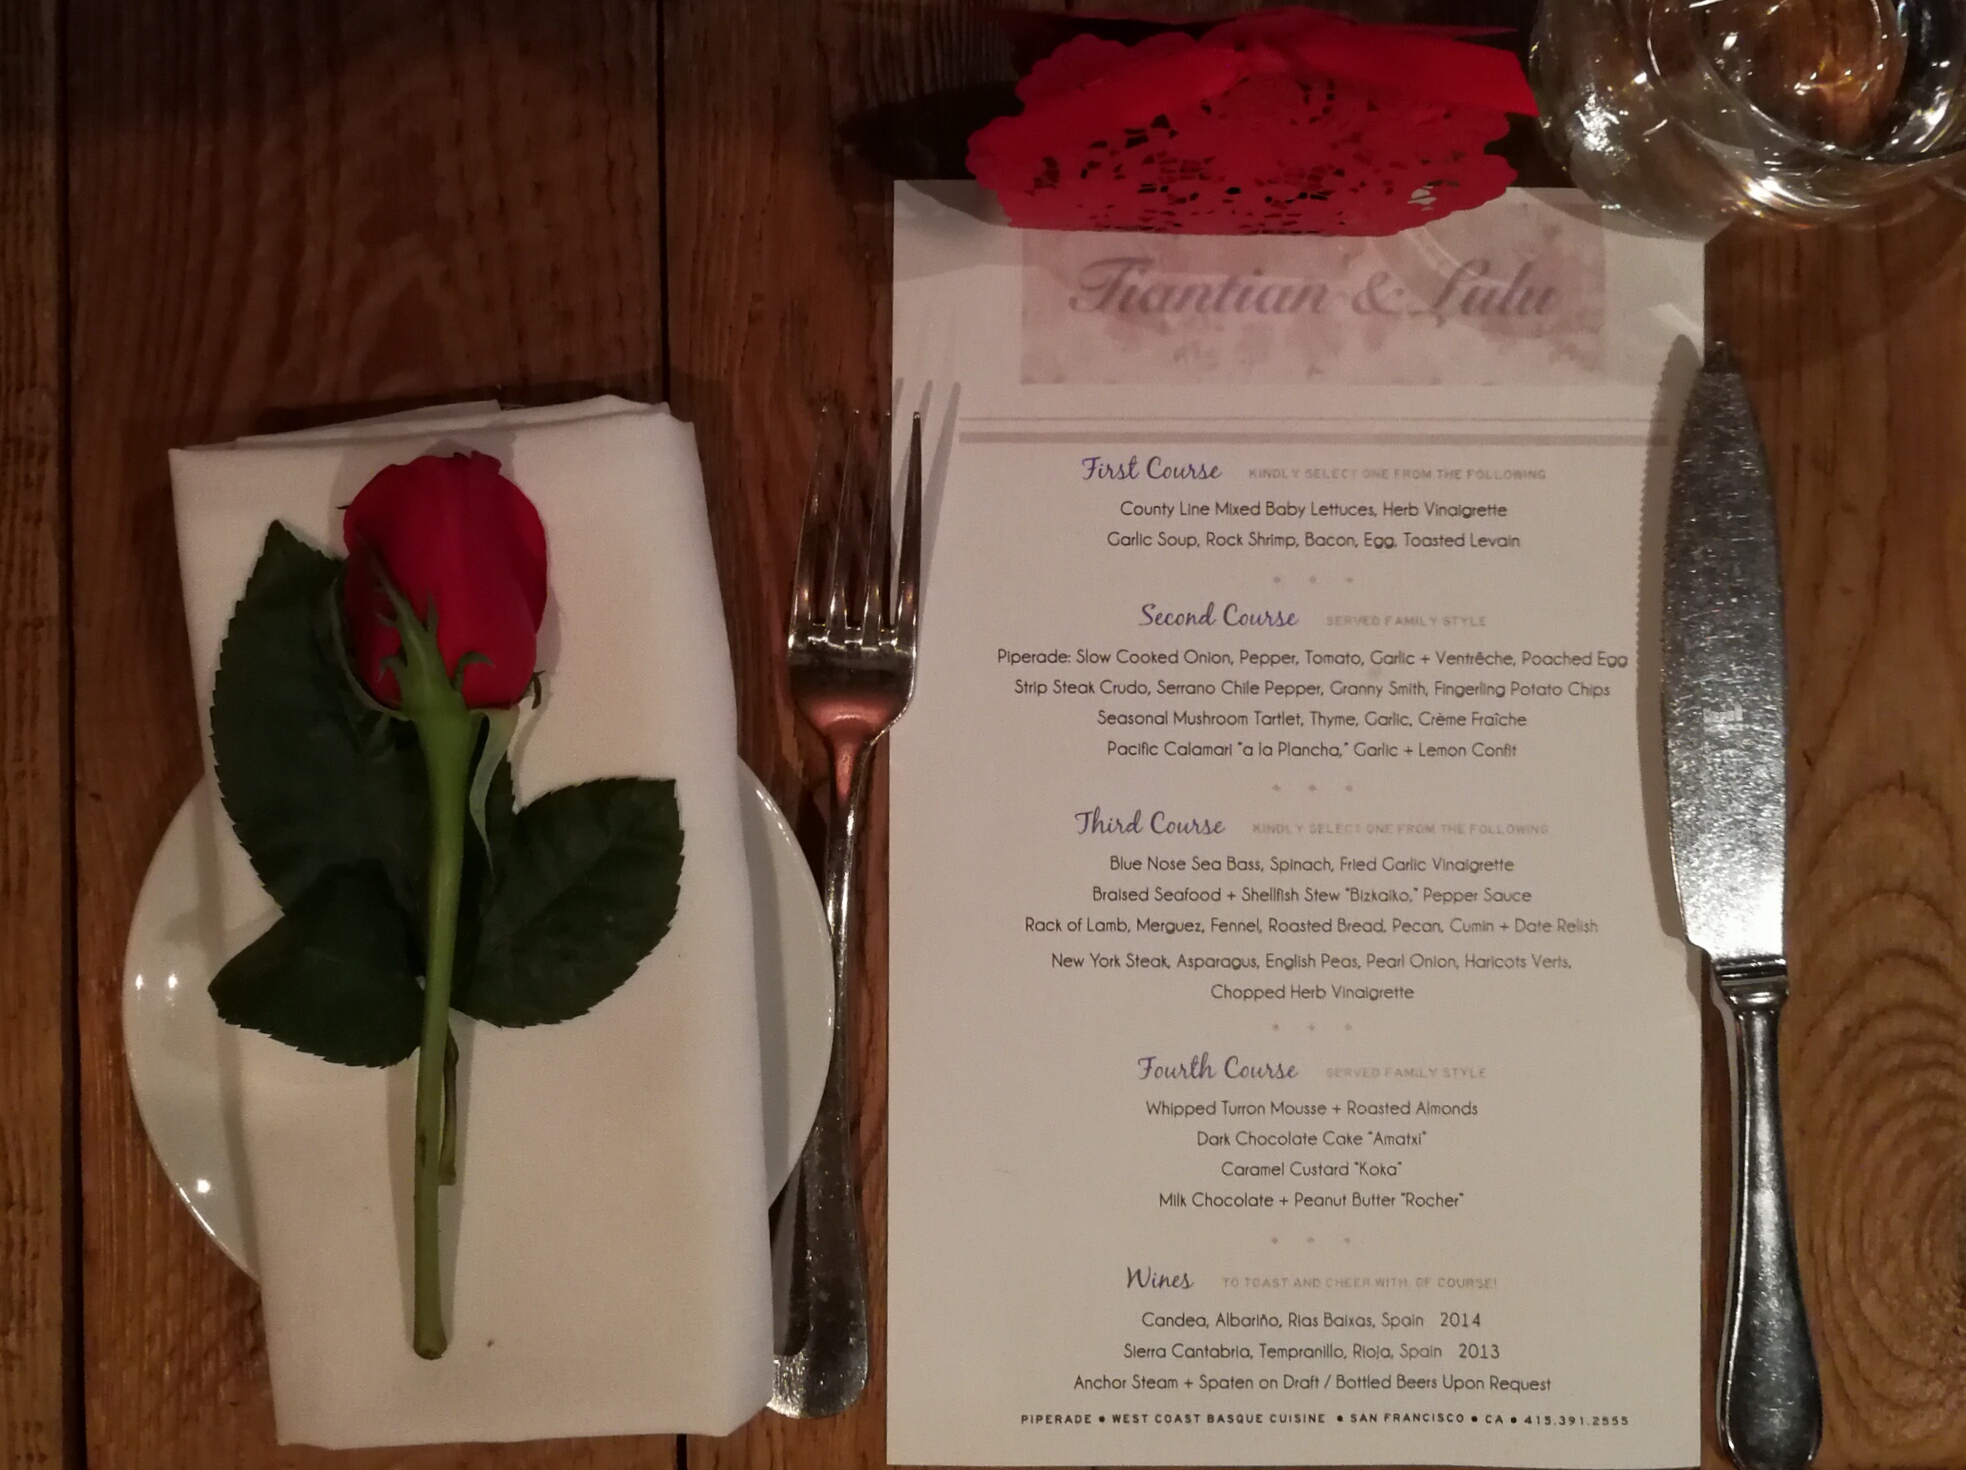 Tiantian & Lulu
First Course KINDLY SELECT ONE FROM THE FOLLOWING
County Line Mixed Baby Lettuces, Herb Vinaigrette
Garlic Soup, Rock Shrimp, Bacon, Egg, Toasted Levain
Second Course SERVED FAMILY STYLE
Piperade: Slow Cooked Onion, Pepper, Tomato, Garlic + Ventrêche, Poached Egg
Strip Steak Crudo, Serrano Chile Pepper, Granny Smith, Fingerling Potato Chips
Seasonal Mushroom Tartlet, Thyme, Garlic, Crème Fraîche
Pacific Calamari "a la Plancha," Garlic + Lemon Confit
Third Course KINDLY SELECT ONE FROM THE FOLLOWING
Blue Nose Sea Bass, Spinach, Fried Garlic Vinaigrette
Braised Seafood + Shellfish Stew "Bizkaiko," Pepper Sauce
Rack of Lamb, Merguez, Fennel, Roasted Bread, Pecan, Cumin + Date Relish
New York Steak, Asparagus, English Peas, Pearl Onion, Haricots Verts,
Chopped Herb Vinaigrette
Fourth Course SERVED FAMILY STYLE
Whipped Turron Mousse + Roasted Almonds
Dark Chocolate Cake "Amatxi"
Caramel Custard "Koka"
Milk Chocolate + Peanut Butter "Rocher"
Wines TO TOAST AND CHEER WITH, OF COURSE!
Candea, Albariño, Rias Baixas, Spain 2014
Sierra Cantabria, Tempranillo, Rioja, Spain 2013
Anchor Steam + Spaten on Draft / Bottled Beers Upon Request
PIPERADE • WEST COAST BASQUE CUISINE • SAN FRANCISCO • CA • 415.391.2555